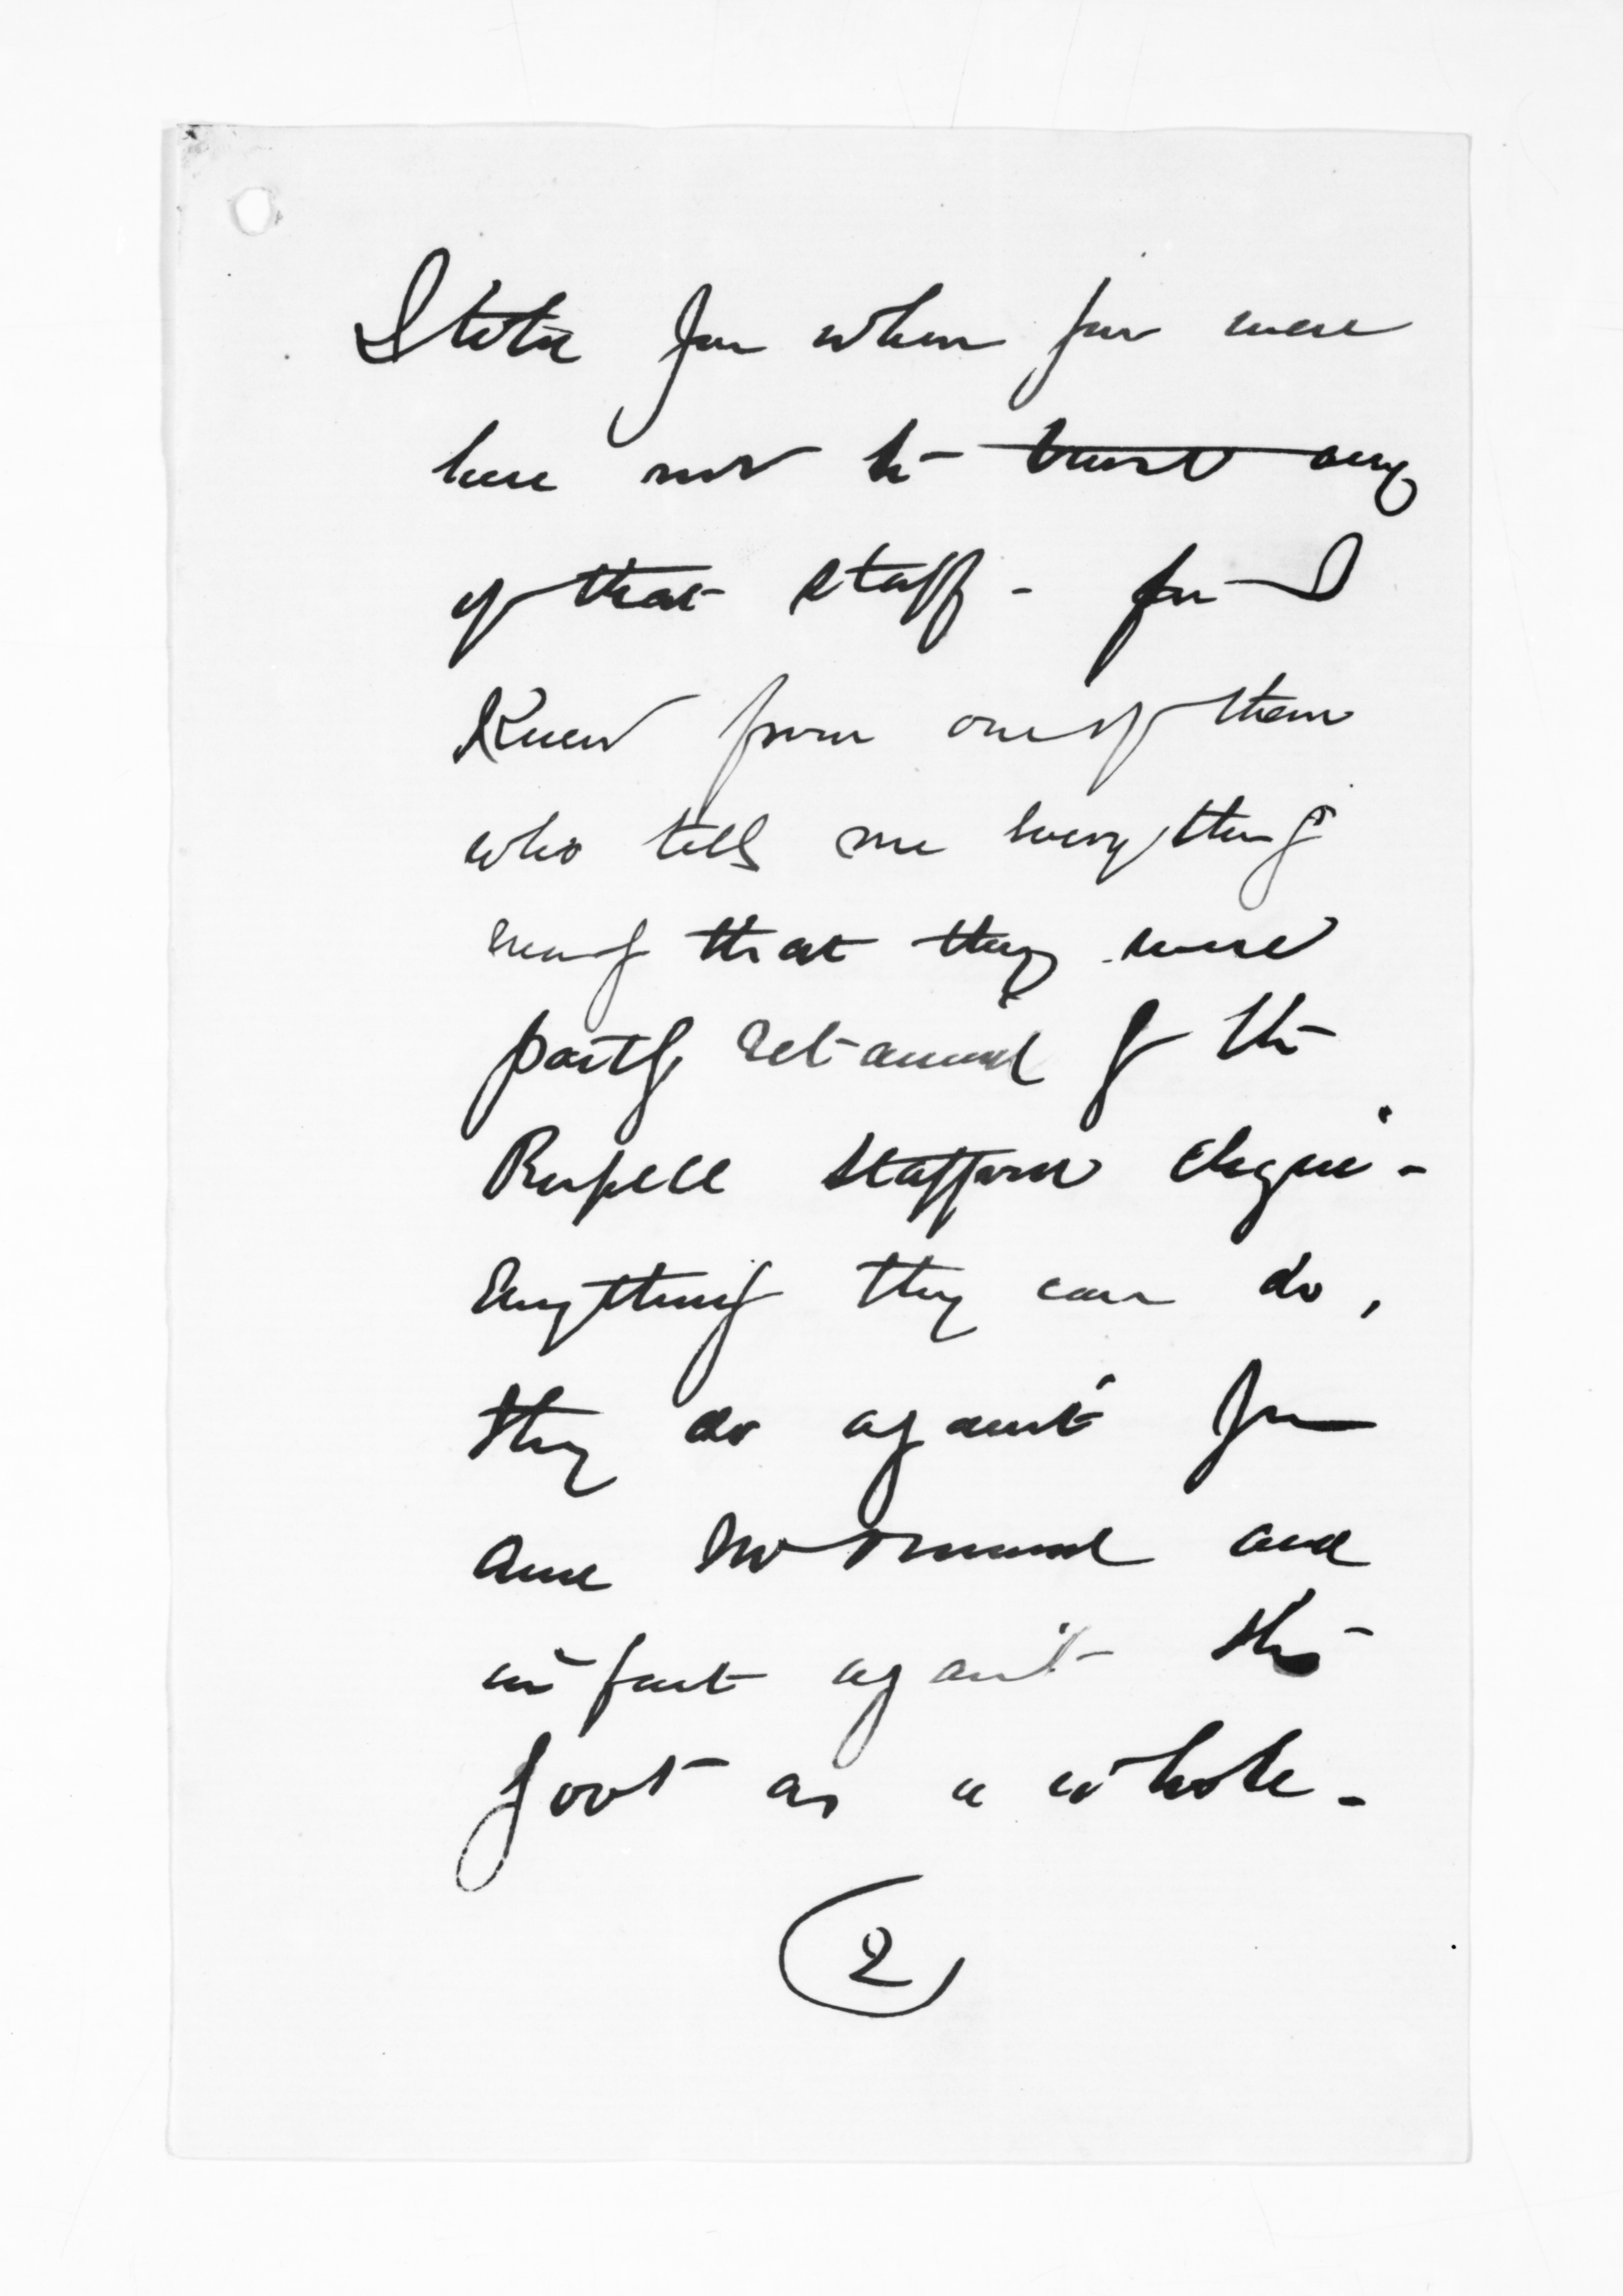 I told you when you were
here not to trust any
of that staff - for I
knew from one of them
who tells me everything
that they were
partly retained of the
Russell Stafford clique -
Anything they can do,
they do against you
and and
in fact against the
Govt as a whole -
2